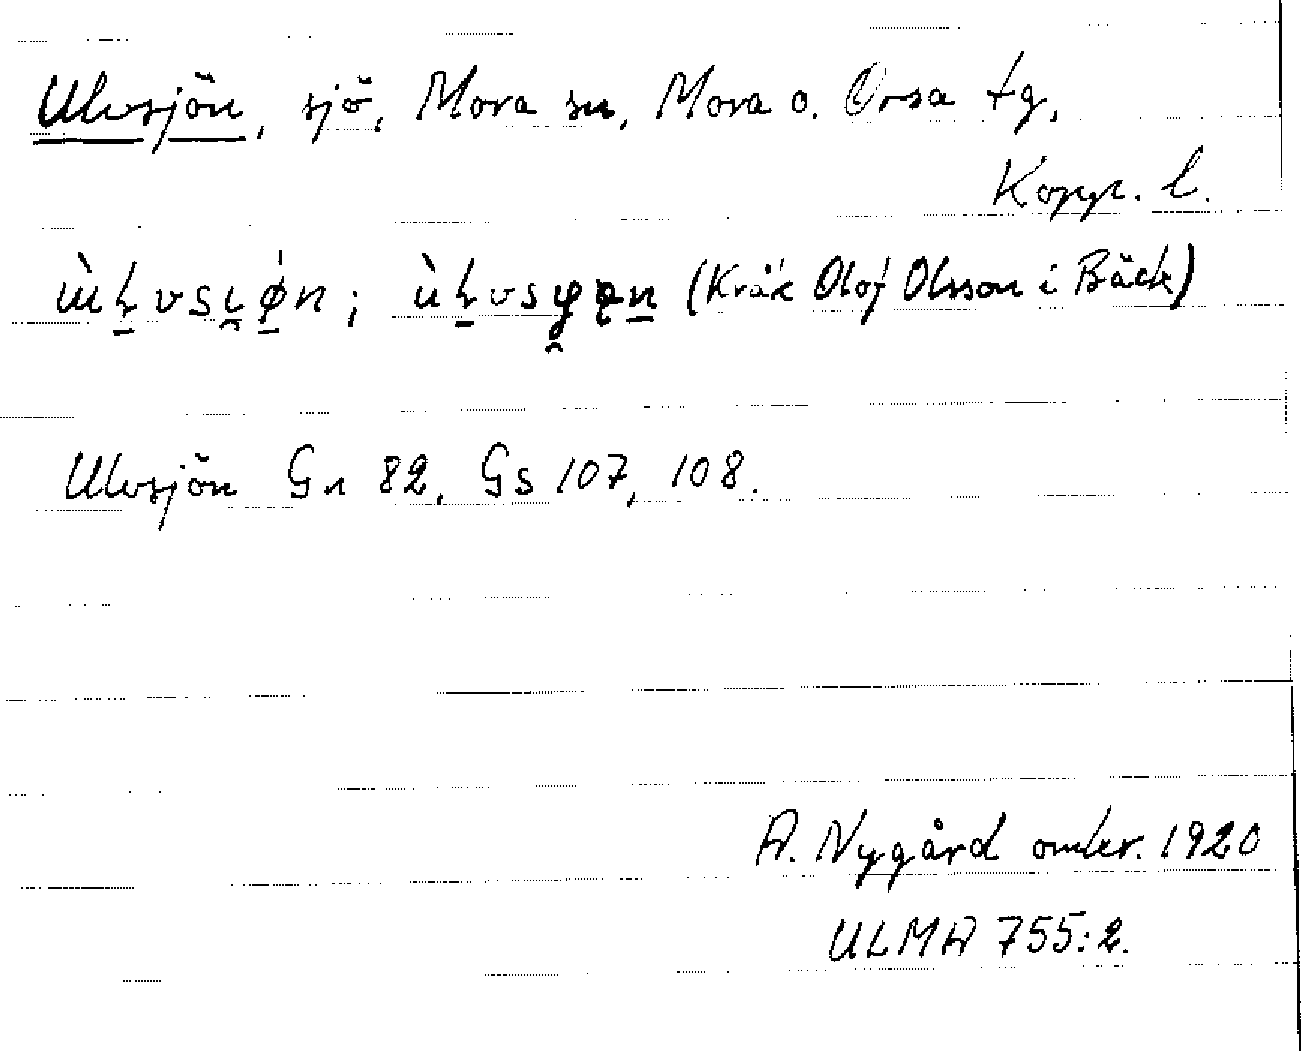 Ulvsjön, sjö, Mora sn, Mora o. Orsa tg,
Kopp. l.
(Kråk Olof Olsson i Bäck)
Ulvsjön Gn 82, GS 107, 108.
A. Nygård omkr. 1920
ULMA 755:2.